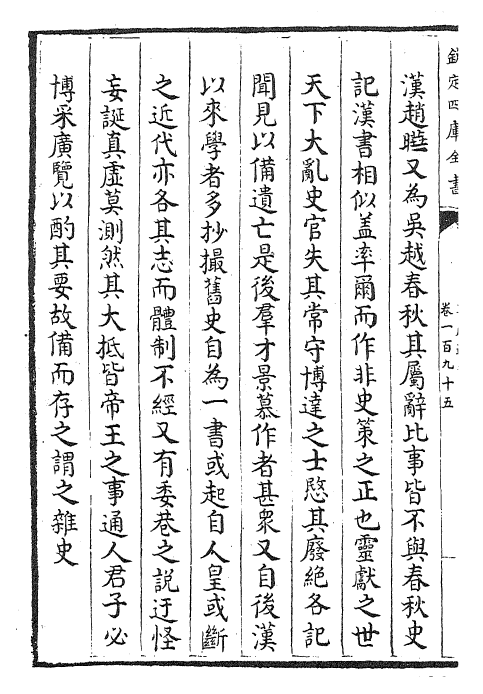 欽定四庫全書
卷一百九十五
漢趙曄又為吳越春秋其屬辭比事皆不與春秋史
記漢書相似盖率爾而作非史策之正也靈獻之世
天下大亂史官失其常守博達之士愍其廢絕各記
聞見以備遺亡是後羣才景慕作者甚衆又自後漢
以來學者多抄撮舊史自為一書或起自人皇或斷
之近代亦各其志而體制不經又有委巷之説迂怪
妄誕真虛莫測然其大抵皆帝王之事通人君子必
博采廣覽以酌其要故備而存之謂之雜史